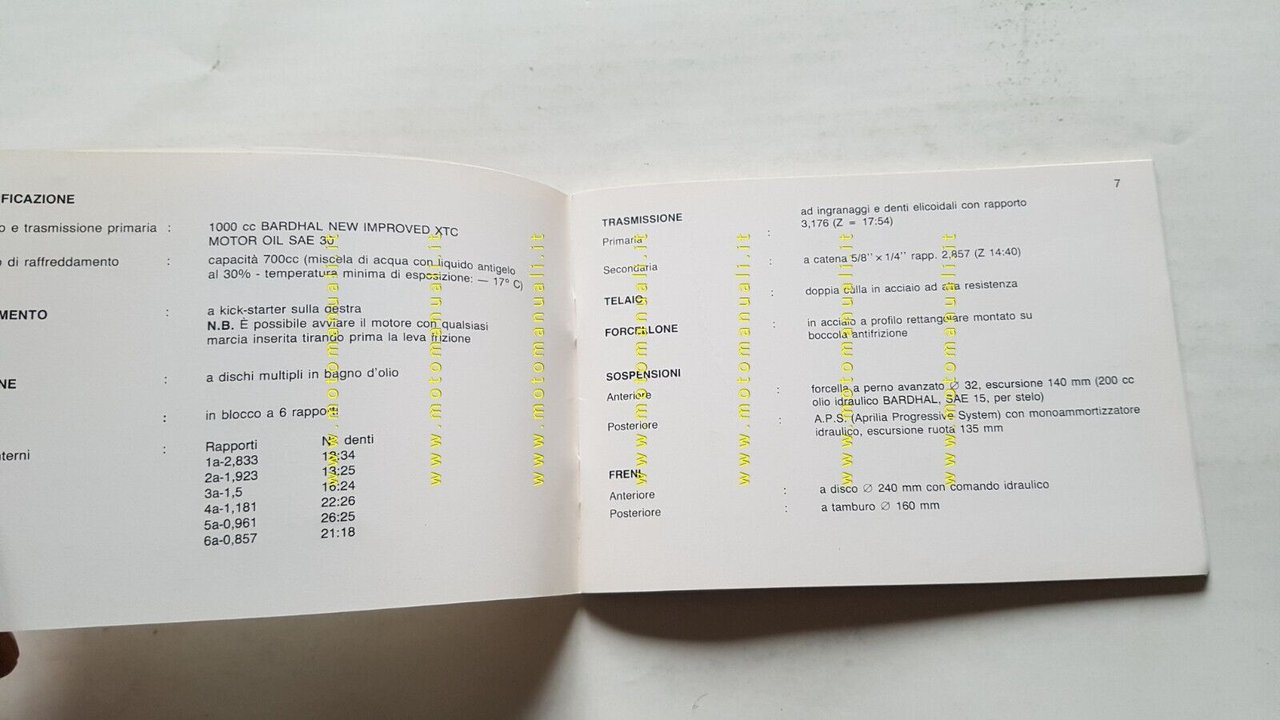 FICAZIONE
o e trasmissione primaria :
1000 cc BARDHAL NEW IMPROVED XTC
MOTOR OIL SAE 30
o di raffreddamento :
capacità 700cc (miscela di acqua con liquido antigelo
al 30% - temperatura minima di esposizione: — 17° C)
MENTO :
a kick-starter sulla destra
N.B. È possibile avviare il motore con qualsiasi
marcia inserita tirando prima la leva frizione
NE :
a dischi multipli in bagno d'olio
:
in blocco a 6 rapporti
nterni :
Rapporti N° denti
1a-2,833 12:34
2a-1,923 13:25
3a-1,5 16:24
4a-1,181 22:26
5a-0,961 26:25
6a-0,857 21:18
7
TRASMISSIONE
Primaria :
ad ingranaggi e denti elicoidali con rapporto
3,176 (Z = 17:54)
Secondaria :
a catena 5/8'' × 1/4'' rapp. 2,857 (Z 14:40)
TELAIO :
doppia culla in acciaio ad alta resistenza
FORCELLONE :
in acciaio a profilo rettangolare montato su
boccola antifrizione
SOSPENSIONI
Anteriore :
forcella a perno avanzato ∅ 32, escursione 140 mm (200 cc
olio idraulico BARDHAL, SAE 15, per stelo)
Posteriore :
A.P.S. (Aprilia Progressive System) con monoammortizzatore
idraulico, escursione ruota 135 mm
FRENI
Anteriore :
a disco ∅ 240 mm con comando idraulico
Posteriore :
a tamburo ∅ 160 mm
www.motomanuali.it
www.motomanuali.it
www.motomanuali.it
www.motomanuali.it
www.motomanuali.it
www.motomanuali.it
www.motomanuali.it